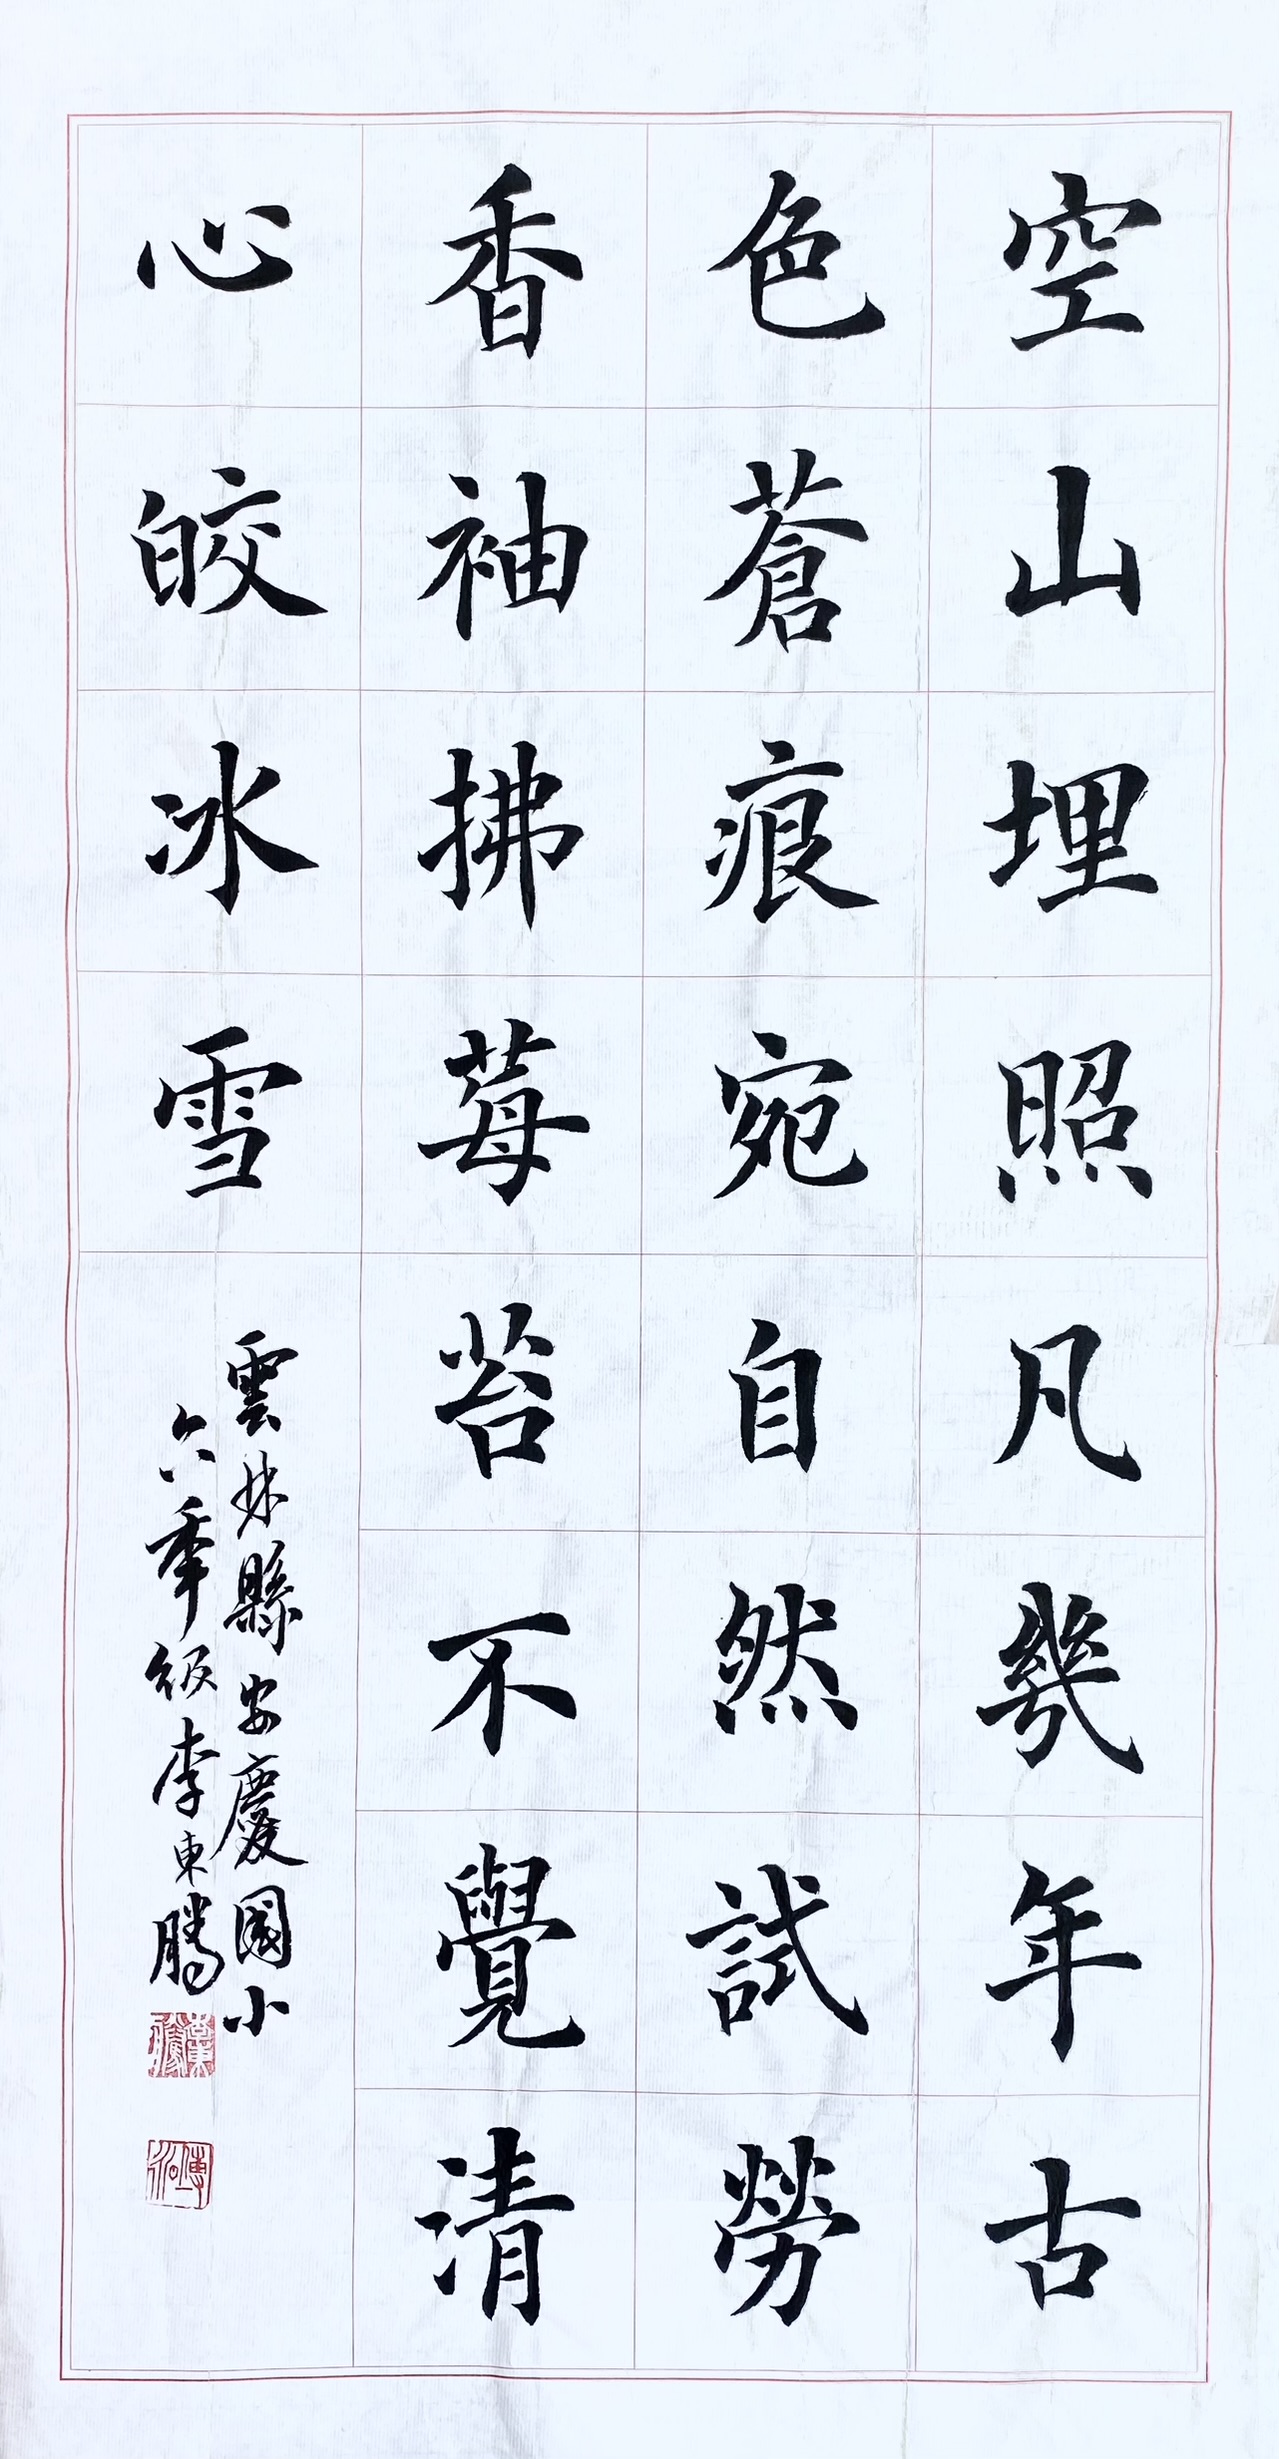 空山埋照凡幾年古
色蒼痕宛自然試勞
香袖拂莓苔不覺清
心皎冰雪
雲林縣安慶國小
六年級李東騰